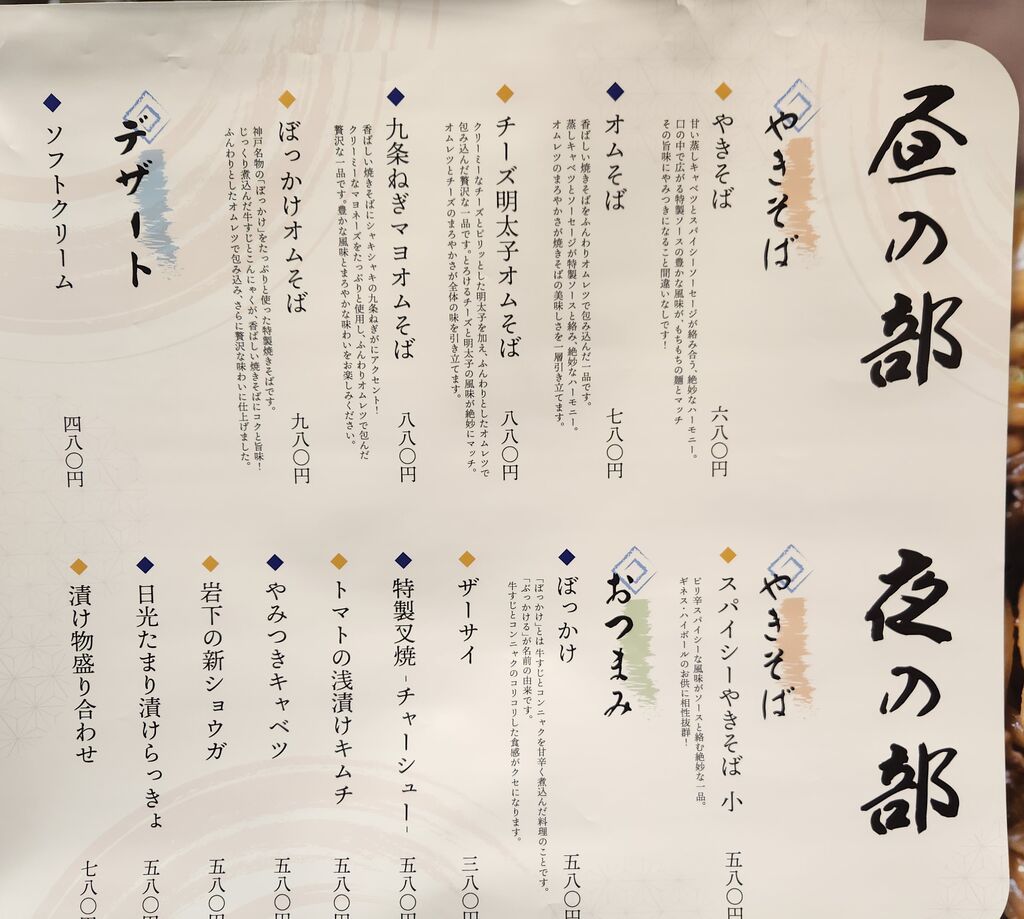 昼の部
やきそば
やきそば
甘い蒸しキャベツとスパイシーソーセージが絡み合う、絶妙なハーモニー。
口の中で広がる特製ソースの豊かな風味が、もちもちの麺とマッチ
その旨味にやみつきになること間違いなしです!
六八〇円
オムそば
香ばしい焼きそばをふんわりオムレツで包み込んだ一品です。
蒸しキャベツとソーセージが特製ソースと絡み、絶妙なハーモニー。
オムレツのまろやかさが焼きそばの美味しさを一層引き立てます。
七八〇円
チーズ明太子オムそば
クリーミーなチーズとピリッとした明太子を加え、ふんわりとしたオムレツで
包み込んだ贅沢な一品です。とろけるチーズと明太子の風味が絶妙にマッチ。
オムレツとチーズのまろやかさが全体の味を引き立てます。
八八〇円
九条ねぎマヨオムそば
香ばしい焼きそばにシャキシャキの九条ねぎがにアクセント!
クリーミーなマヨネーズをたっぷりと使用し、ふんわりオムレツで包んだ
贅沢な一品です。豊かな風味とまろやかな味わいをお楽しみください。
八八〇円
ぼっかけオムそば
神戸名物の「ぼっかけ」をたっぷりと使った特製焼きそばです。
じっくり煮込んだ牛すじとこんにゃくが、香ばしい焼きそばにコクと旨味!
ふんわりとしたオムレツで包み込み、さらに贅沢な味わいに仕上げました。
九八〇円
デザート
ソフトクリーム
四八〇円
夜の部
やきそば
スパイシーやきそば 小
ピリ辛スパイシーな風味がソースと絡む絶妙な一品。
ギネス・ハイボールのお供に相性抜群!
五八〇円
おつまみ
ぼっかけ
「ぼっかけ」とは牛すじとコンニャクを甘辛く煮込んだ料理のことです。
「ぶっかける」が名前の由来です。
牛すじとコンニャクのコリコリした食感がクセになります。
五八〇円
ザーサイ
三八〇円
特製叉焼 -チャーシュー-
五八〇円
トマトの浅漬けキムチ
五八〇円
やみつきキャベツ
五八〇円
岩下の新ショウガ
五八〇円
日光たまり漬けらっきょ
五八〇円
漬け物盛り合わせ
七八〇円